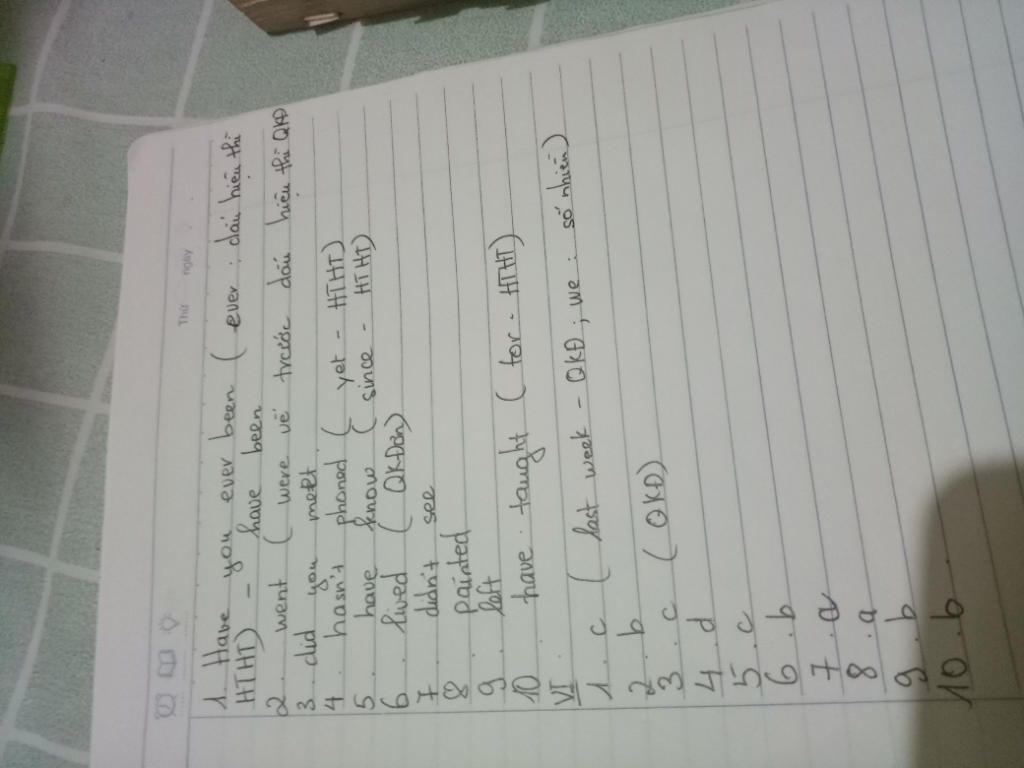 Thứ ngày
1. Have you ever been ( ever : dấu hiệu thì
HTHT) - have been
2. went ( were vế trước dấu hiệu thì QKĐ
3. did you mett
4. hasn't phoned ( yet - HTHT)
5. have know ( since - HTHT)
6. lived ( QKĐĐn)
7 didn't see
8 painted
9. left
10. have taught ( for - HTHT)
VI.
1. c ( last week - QKĐ; we : số nhiên)
2. b
3. c ( QKĐ)
4. d
5. c
6. b
7. a
8. a
9. b
10. b.